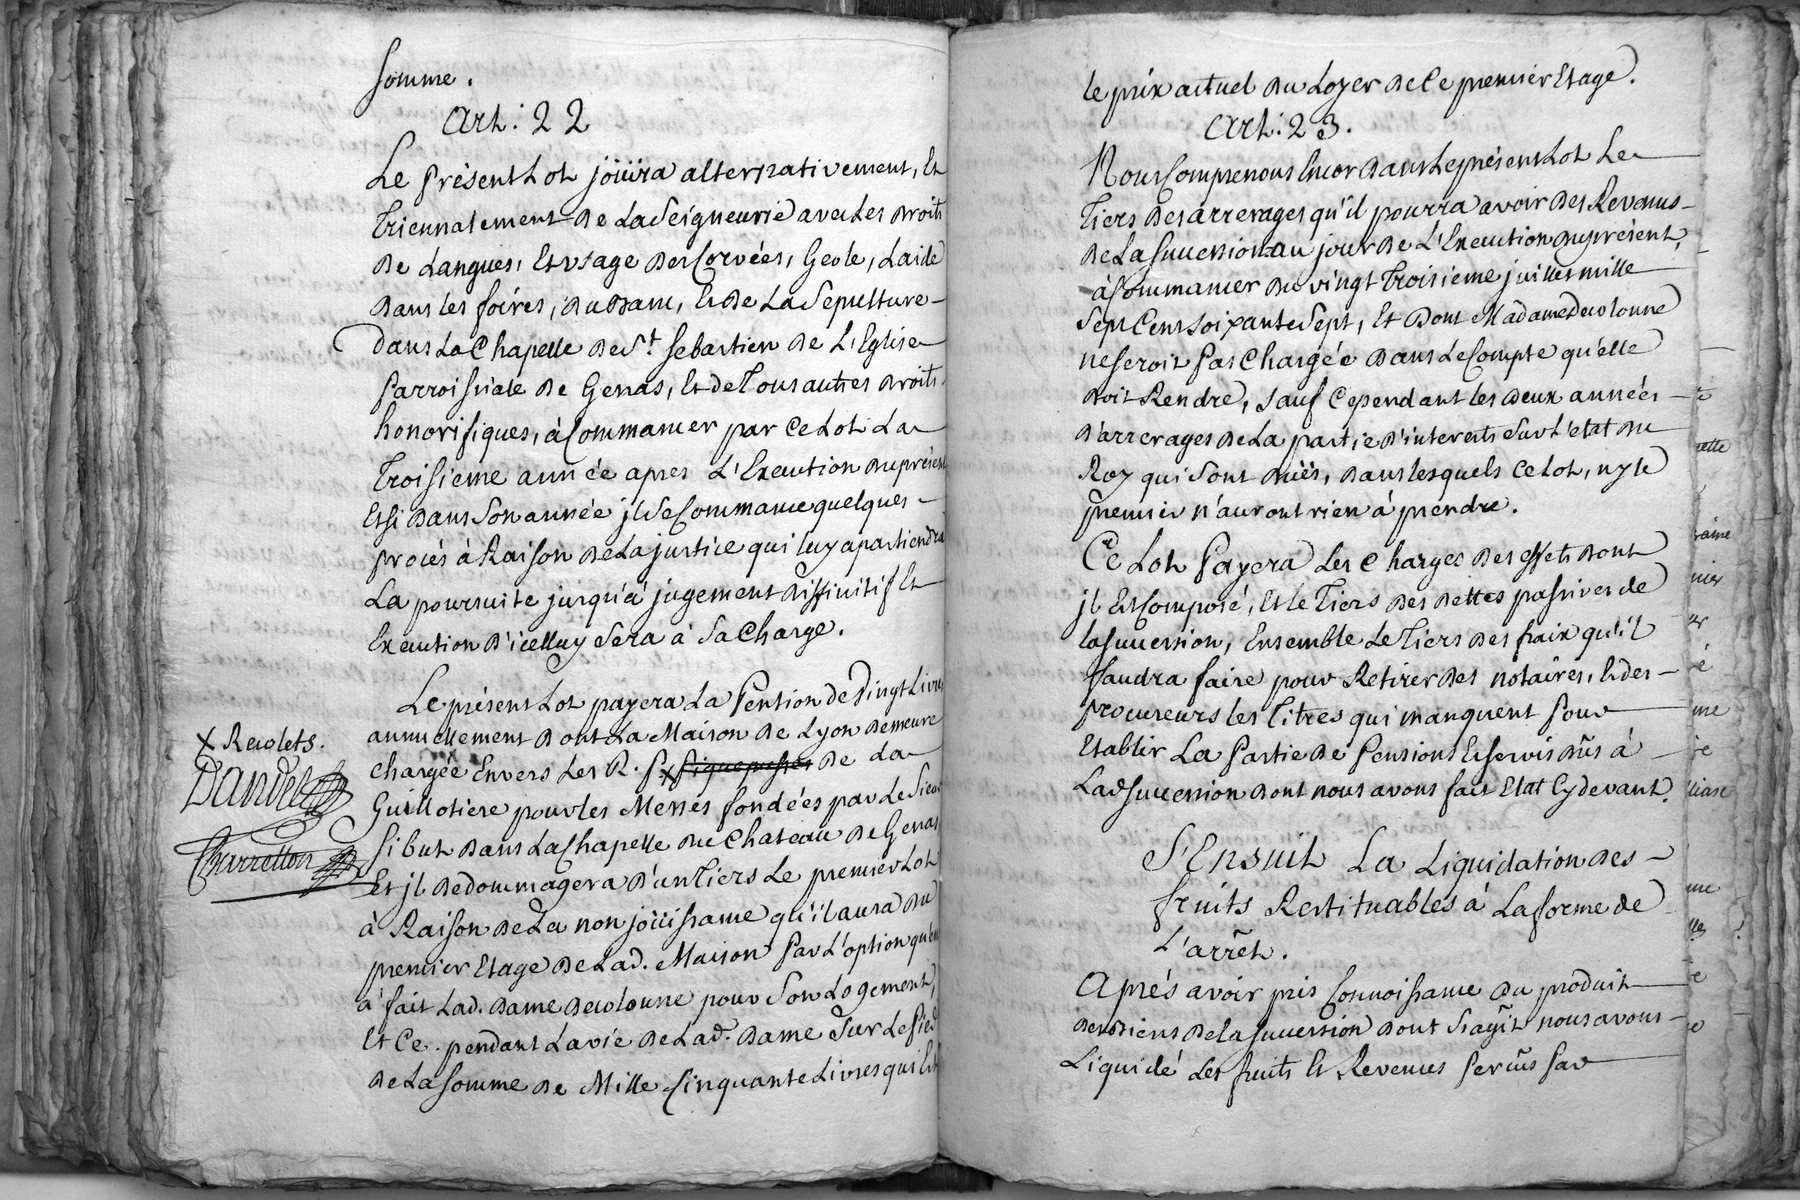 somme.
Art: 22
Le présent Lot joüira alternativement, Et
Triennalement De La Seigneurie avec Les droits
De Langues, Et usage Des Corvées, Geole, Laide
Dans les foires, Du Banc, Et De La Sepulture
dans La Chapelle De St. Sebastien De L'Eglise
Parroissiale De Genas, Et de Tous autres Droits
honorifiques, à Commancer par Ce Lot La
Troisieme année apres L'Execution du présent
Et si Dans Son année jl Se Commance quelques
procés à Raison De La justice qui luy apartiendra
La poursuite jusqu'à jugement diffinitif Et
Execution D'icelluy Sera à Sa Charge.
Le présent Lot payera La Pension de Vingt Livres
annuellement Dont La Maison De Lyon Demeure
chargée Envers Les R. P. x De La
Guillotiere pour les Messes fondées par Le Sieur
Sibut Dans La Chapelle du Chateau De Genas
Et jl Dedommagera D'un Tiers Le premier Lot
à Raison De La non joüissance qu'il aura Du
premier Etage De Lad. Maison Par L'option qu'en
a fait Lad. Dame Decolonne pour Son Logement,
Et Ce pendant La vie De Lad. Dame Sur Le Pied
De La Somme De Mille Cinquante Livres qui Est
x Recolets.
Dandel
Charretton
le prix actuel Du Loyer De Ce premier Etage.
Art: 23.
Nous Comprenons Encor Dans Le présent Lot Le
Tiers Des arrerages qu'il pourra avoir Des Revenus
De La Succession au jour De L'Execution Du présent,
à Commancer Du vingt Troisieme juillet mille
Sept Cent Soixante Sept, Et Dont Madame Decolonne
ne Seroit Pas Chargée Dans Le Compte qu'elle
doit Rendre, Sauf Cependant les Deux années
D'arrerages De La partie D'interets Sur L'etat Du
Roy qui Sont Duës, Dans lesquels Ce Lot, ny le
premier n'auront rien à prendre.
Ce Lot Payera Les Charges Des effets Dont
jl Est Composé, Et Le Tiers Des Dettes passives de
la Succession, Ensemble Le Tiers Des fraix qu'il
faudra faire pour Retirer Des notaires, Et des
procureurs les Titres qui manquent Pour
Etablir La Partie De Pensions Et Servis Dûs à
Lad Succession Dont nous avons fait Etat Cy devant.
S'Ensuit La Liquidation Des
fruits Restituables à La forme de
L'arrêt.
Aprés avoir pris Connoissance Du produit
Des Biens De La Succession Dont S'agit nous avons
Liquidé Les fruits Et Revenus Perçûs Par